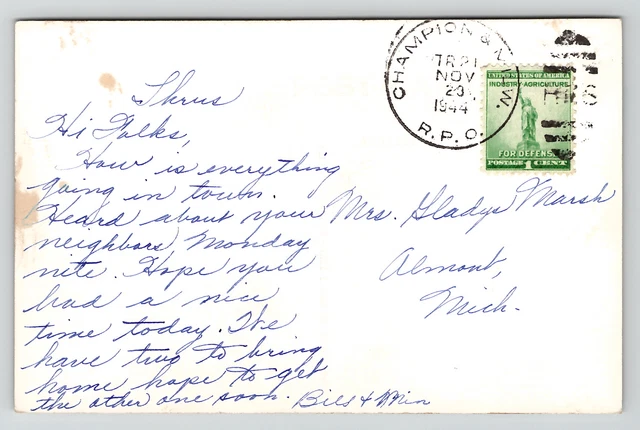 Thurs
Hi Folks,
How is everything
going in town.
Heard about your
neighbors Monday
nite. Hope you
had a nice
time today. We
have two to bring
home hope to get
the other one soon. Bill & Min
Mrs. Gladys Marsh
Almont,
Mich.
CHAMPION & MILW.
TR21
NOV
23
1944
R.P.O.
UNITED STATES OF AMERICA
INDUSTRY-AGRICULTURE
FOR DEFENSE
POSTAGE 1 CENT